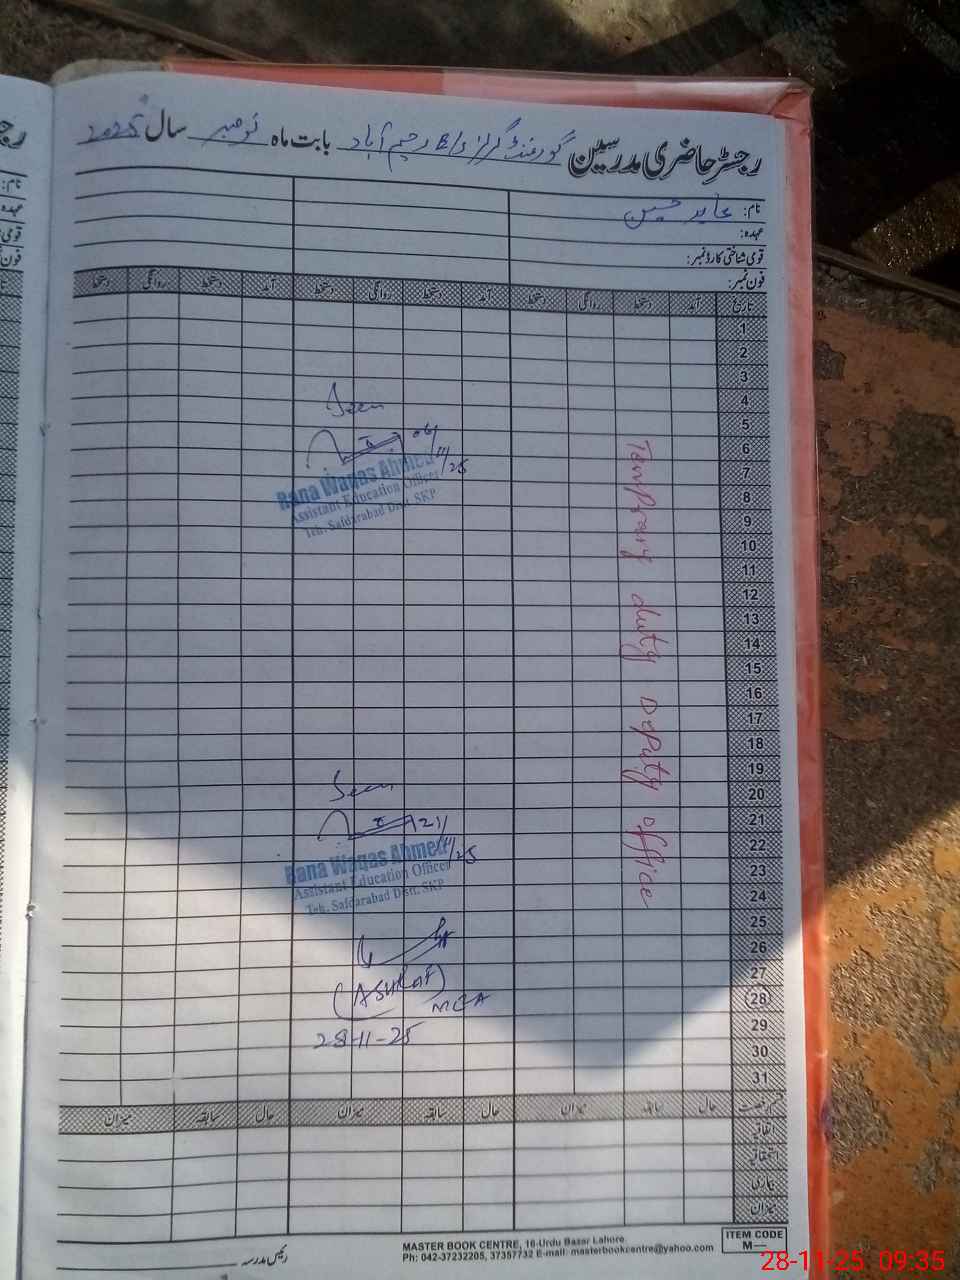 رجسٹر حاضری مدرسین گورنمنٹ گرلز E/S رحیم آباد بابت ماہ نومبر سال 2025
نام: عابد حسین
عہدہ:
قومی شناختی کارڈ نمبر:
فون نمبر:
تاریخ آمد دستخط روانگی دستخط آمد دستخط روانگی دستخط آمد دستخط روانگی دستخط
1
2
3
4
5
6
7
8
9
10
11
12
13
14
15
16
17
18
19
20
21
22
23
24
25
26
27
28
29
30
31
Temprary duty Deputy office
Seen
06/11/25
Rana Waqas Ahmed
Assistant Education Officer
Teh. Safdarabad Distt. SKP
Seen
21/11/25
Rana Waqas Ahmed
Assistant Education Officer
Teh. Safdarabad Distt. SKP
(ASHRAF)
MEA
28-11-25
قسم رخصت حال سابقہ میزان حال سابقہ میزان حال سابقہ میزان
اتفاقیہ
استحقاقیہ
بیماری
میزان
رئیس مدرسہ
MASTER BOOK CENTRE, 16-Urdu Bazar Lahore.
Ph: 042-37232205, 37357732 E-mail: masterbookcentre@yahoo.com
ITEM CODE
M—
28-11-25 09:35